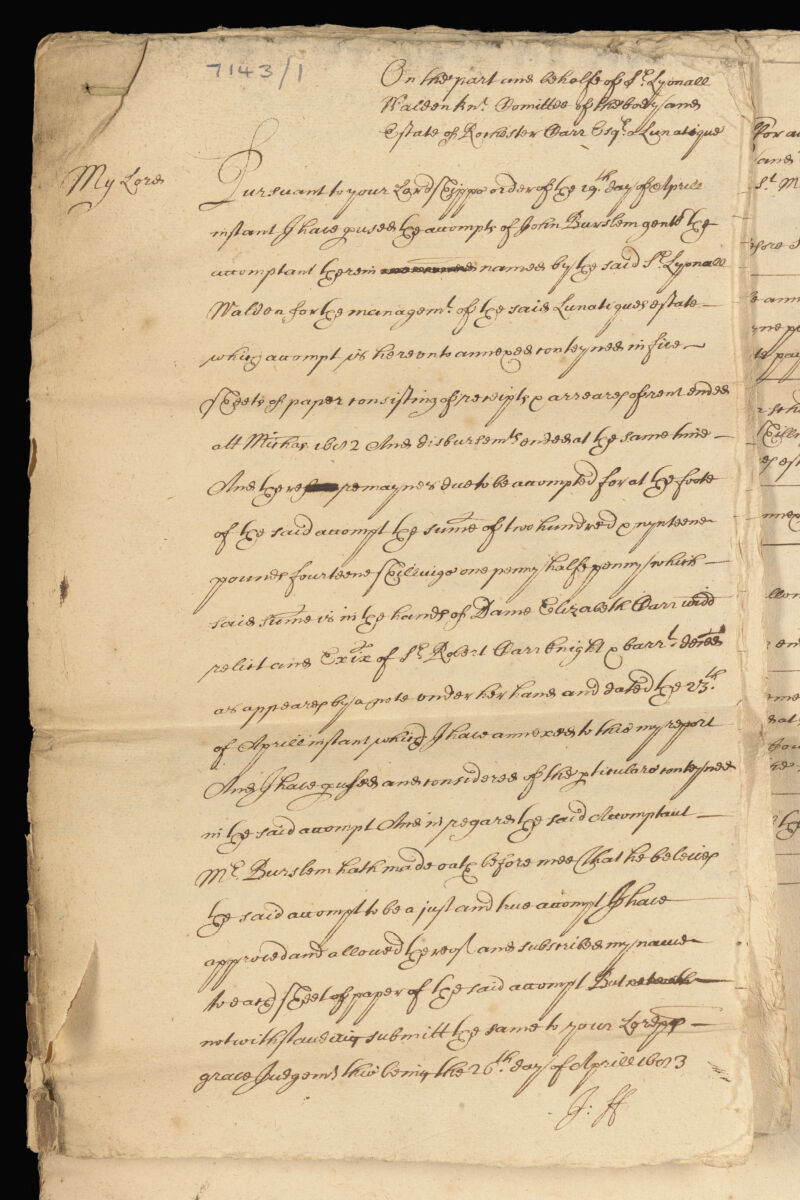 7143/1
On the part and behalfe of Sr. Lyonall
Walden Knt. Comittee of the body and
Estate of Rochester Carr Esqr. a Lunatique
My Lord
Pursuant to your Lordshipps order of the 19th. day of Aprill
instant I have pused the accompts of John Burslem gent. the
accomptant therein named by the said Sr. Lyonall
Walden for the managemt. of the said Lunatiques estate
which accompt is hereunto annexed conteyned in five
sheets of paper consisting of receipts & arreares of rent ended
att Michas 1682 And disbursemts. ended at the same time
And there remaynes due to be accompted for at the foote
of the said accompt the sume of two hundred & nynteene
pounds fourteene shillings one penny halfe penny which
said sume is in the hands of Dame Elizabeth Carr widd
relict and Exix of Sr. Robert Carr knight & barrt. deced
as appeares by a note under her hand and dated the 23th.
of Aprill instant which I have annexed to this my report
And I have pused and considered of the pticulars conteyned
in the said accompt And in regard the said Accomptant
Mr. Burslem hath made oath before mee That he beleives
the said accompt to be a just and true accompt I have
approved and allowed thereof and subscribed my name
to each sheet of paper of the said accompt But
notwithstanding submitt the same to your Lordpps
grave Judgemt. this being the 26th. day of Aprill 1683
J: H